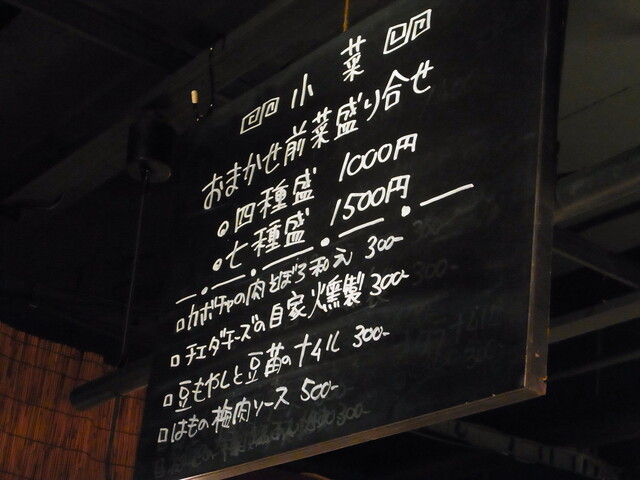 小菜
おまかせ前菜盛り合せ
四種盛 1000円
七種盛 1500円
カボチャの肉そぼろ和え 300-
チェダチーズの自家燻製 300-
豆もやしと豆苗のナムル 300-
はもの梅肉ソース 500-